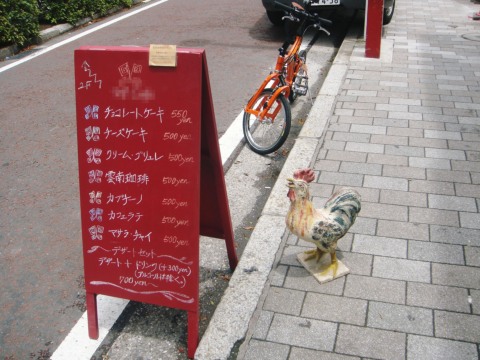 2F
チョコレートケーキ 550yen
チーズケーキ 500yen
クリーム・ブリュレ 500yen
雲南珈琲 500yen
カプチーノ 500yen
カフェラテ 500yen
マサラ・チャイ 500yen
〜デザートセット〜
デザート + ドリンク (+300yen)
(アルコールは除く)
700yen